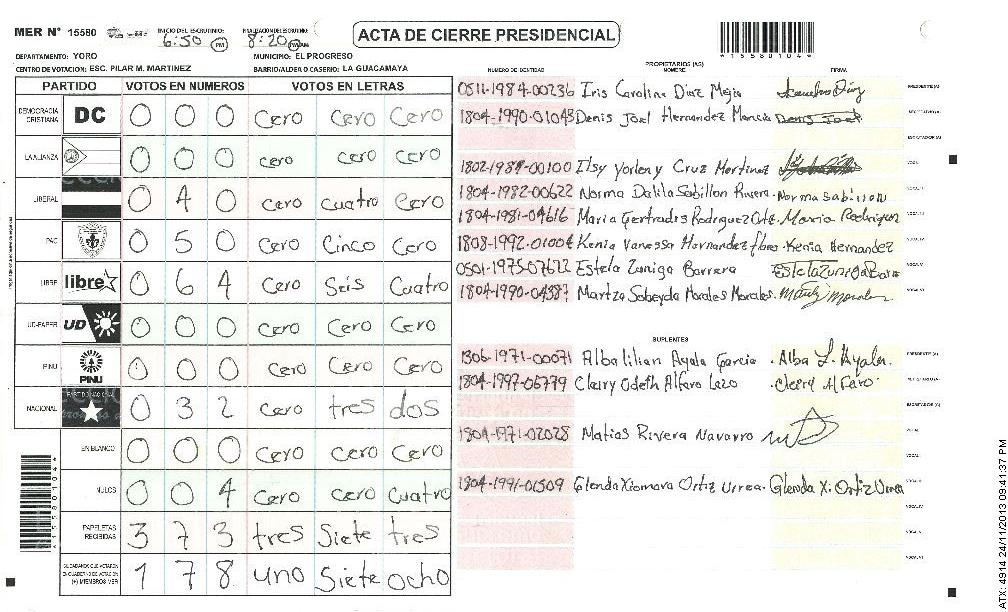 MER N° 15580
INICIO DEL ESCRUTINIO: 6:50 PM
FINALIZACION DEL ESCRUTINIO: 8:20 PM
ACTA DE CIERRE PRESIDENCIAL
*15580104*
DEPARTAMENTO: YORO
MUNICIPIO: EL PROGRESO
CENTRO DE VOTACION: ESC. PILAR M. MARTINEZ
BARRIO/ALDEA O CASERIO: LA GUACAMAYA
PARTIDO VOTOS EN NUMEROS VOTOS EN LETRAS
DEMOCRACIA CRISTIANA DC 0 0 0 Cero Cero Cero
LA ALIANZA 0 0 0 cero cero cero
LIBERAL 0 4 0 cero cuatro Cero
PAC 0 5 0 Cero Cinco Cero
LIBRE libre 0 6 4 Cero Seis Cuatro
UD-FAPER UD 0 0 0 Cero Cero Cero
PINU PINU 0 0 0 Cero Cero Cero
NACIONAL PARTIDO NACIONAL 0 3 2 Cero tres dos
EN BLANCO 0 0 0 Cero Cero Cero
NULOS 0 0 4 Cero cero Cuatro
PAPELETAS RECIBIDAS 3 7 3 tres Siete tres
CIUDADANOS QUE VOTARON EN CUADERNO DE VOTACION (+) MIEMBROS MER 1 7 8 uno Siete ocho
*15580104*
PROPIETARIOS (AS)
NUMERO DE IDENTIDAD NOMBRE FIRMA
0511-1984-00236 Iris Carolina Diaz Mejia PRESIDENTE (A)
1804-1990-01043 Denis Joel Hernandez Denis Joel SECRETARIO (A)
ESCRUTADOR (A)
00100 Ilsy Yorleny Cruz Martinez VOCAL I
1804-1982-00622 Norma Dalila Sabillon Rivera. Norma Sabillon VOCAL II
1804-1981-04616 Maria Gertrudis Rodriguez Maria Rodriguez
1808-1992-01004 Kenia Vanessa Hernandez flores Kenia Hernandez
0501-1975-07622 Estela Zuniga Barrera Estela Zuniga
1804-1990-04387 Sobeyda Morales Morales.
SUPLENTES
1306-1971-00071 Alba lilian Ayala Garcia Alba L. Ayala. PRESIDENTE (A)
1804-1997-06779 Odeth Alfaro Alfaro
ESCRUTADOR (A)
1804-1971-02028 Matias Rivera Navarro
1804-1991-01509 Glenda Xiomara Ortiz Urrea. Glenda X. Ortiz Urrea
ATX: 4914 24/11/2013 09:41:37 PM